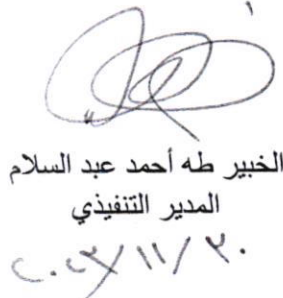 الخبير طه أحمد عبد السلام
المدير التنفيذي
٢٠٢٣/١١/٢٠